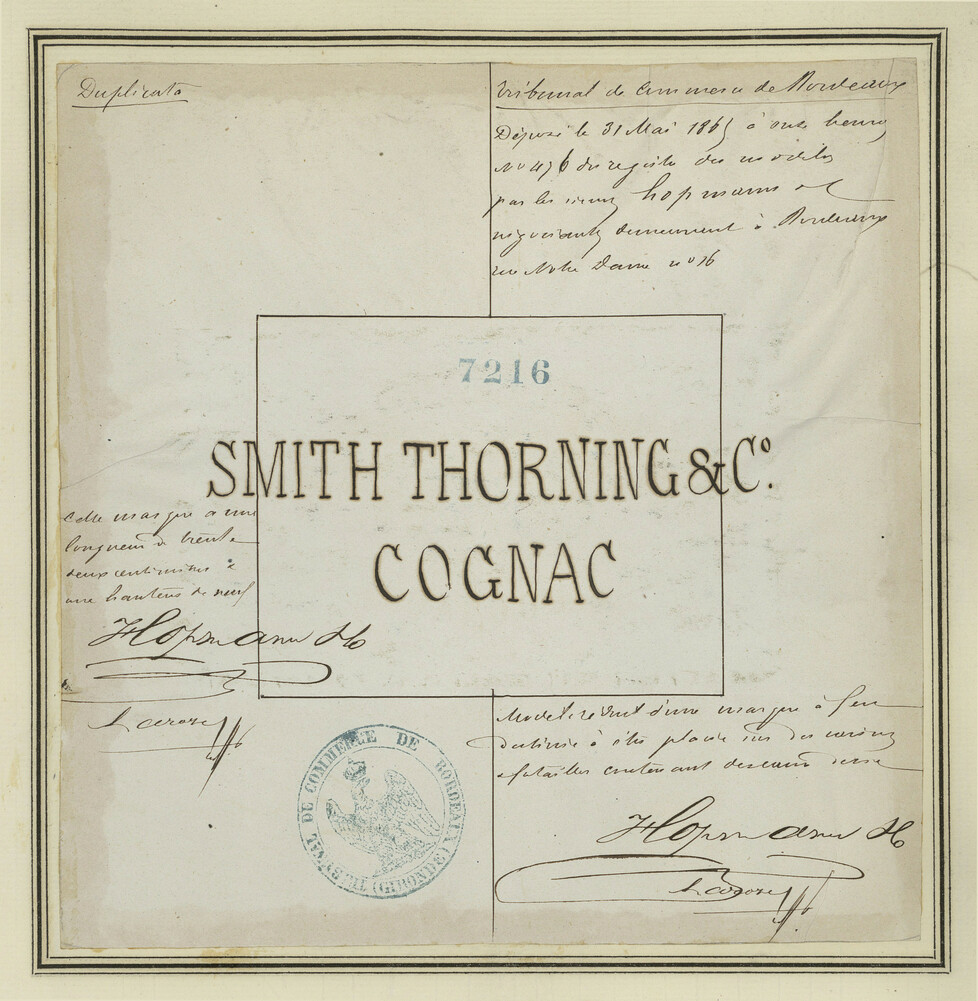 Duplicata
Tribunal de Commerce de Bordeaux
Déposé le 31 Mai 1865 à onze heures
No 476 du registre des modèles
par les sieurs Hopmann et
négociants demeurant à Bordeaux
rue Notre Dame no 16
7216
SMITH THORNING & Co.
COGNAC
Cette marque a une
longueur de trente
deux centimètres &
une hauteur de neuf
Hopmann
Modèle réduit d'une marque à feu
destinée à être placée sur des caisses
& futailles contenant des eaux de vie
Hopmann
TRIBUNAL DE COMMERCE DE BORDEAUX (GIRONDE)